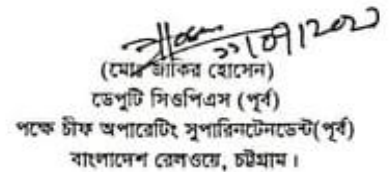 ২১/০৭/২০২৩
(মোঃ জাকির হোসেন)
ডেপুটি সিওপিএস (পূর্ব)
পক্ষে চীফ অপারেটিং সুপারিনটেনডেন্ট(পূর্ব)
বাংলাদেশ রেলওয়ে, চট্টগ্রাম।